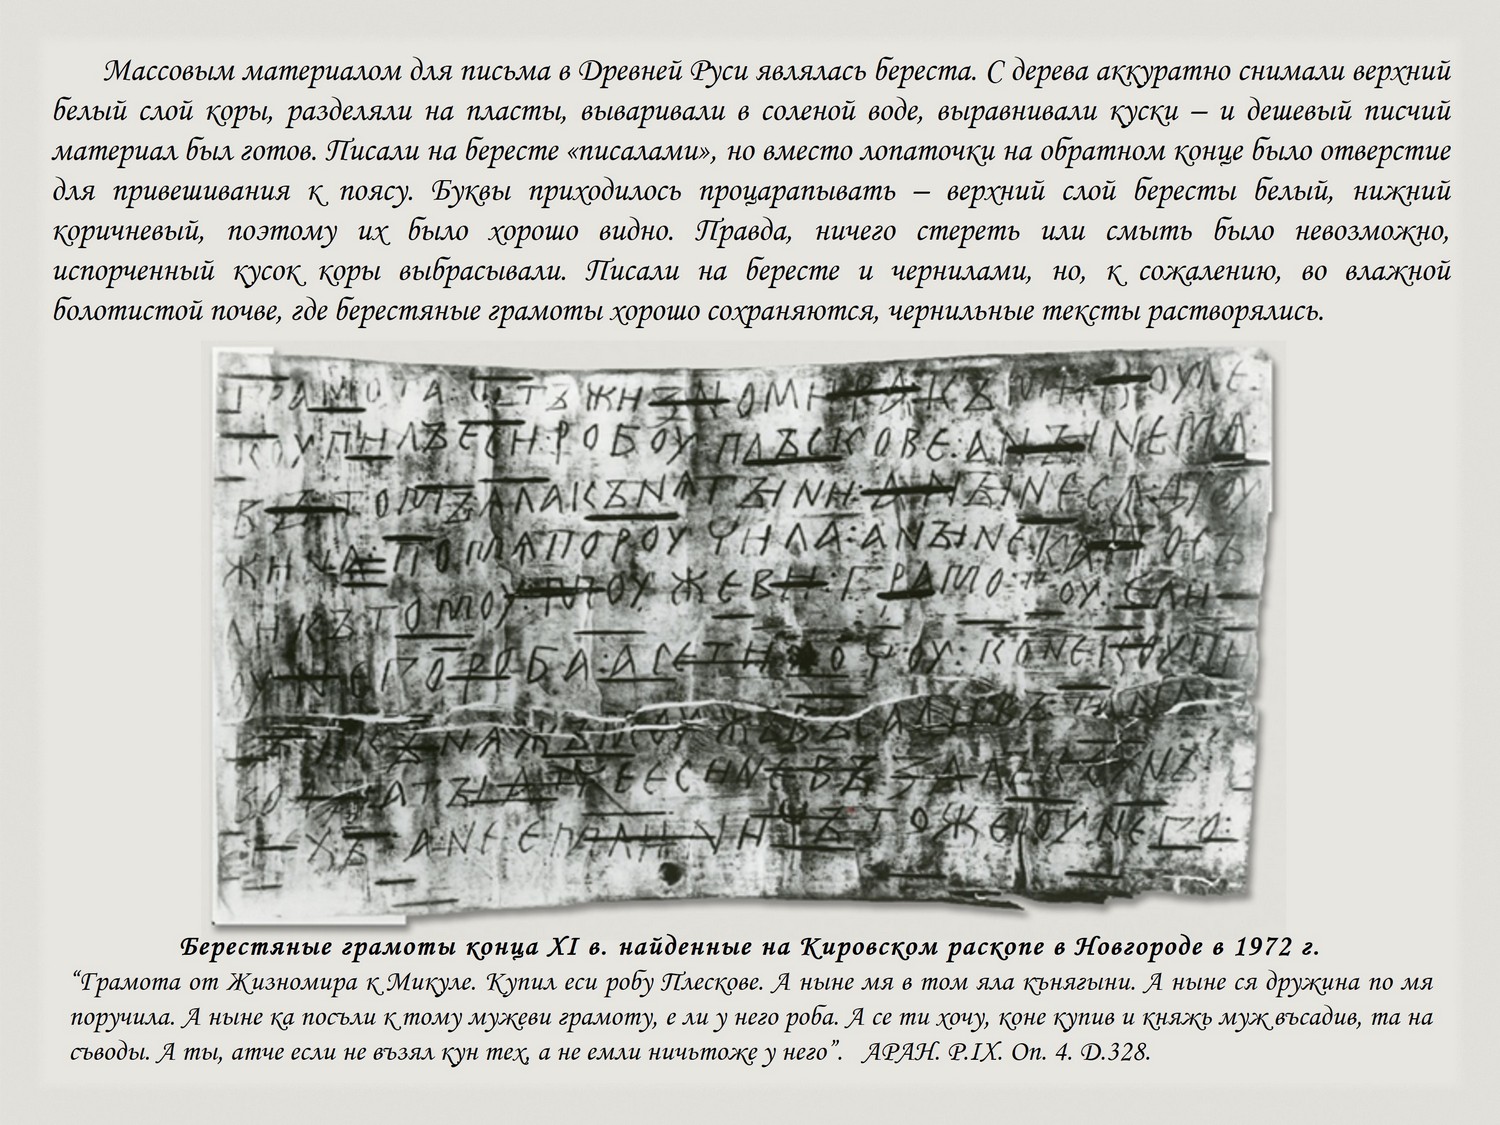 Массовым материалом для письма в Древней Руси являлась береста. С дерева аккуратно снимали верхний
белый слой коры, разделяли на пласты, вываривали в соленой воде, выравнивали куски – и дешевый писчий
материал был готов. Писали на бересте «писалами», но вместо лопаточки на обратном конце было отверстие
для привешивания к поясу. Буквы приходилось процарапывать – верхний слой бересты белый, нижний
коричневый, поэтому их было хорошо видно. Правда, ничего стереть или смыть было невозможно,
испорченный кусок коры выбрасывали. Писали на бересте и чернилами, но, к сожалению, во влажной
болотистой почве, где берестяные грамоты хорошо сохраняются, чернильные тексты растворялись.
ГРАМОТА : ОТЪ ЖИЗНОМИРА КЪ МИКОУЛЕ :
КОУПИЛЪ ЕСИ : РОБОУ ПЛЪСКОВЕ : А НЪІНЕ МА
ВЪ ТОМЪ АЛА КЪНАГЪІНИ : А НЪІНЕ СА ДРОУ
ЖИНА : ПО МА ПОРОУЧИЛА : А НЪІНЕ КА ПОСЪ
ЛИ КЪ ТОМОУ : МОУЖЕВИ : ГРАМОТОУ : ЕЛИ
ОУ НЕГО РОБА : А СЕ ТИ ХОЧОУ : КОНЕ КОУПИ
Берестяные грамоты конца XI в. найденные на Кировском раскопе в Новгороде в 1972 г.
“Грамота от Жизномира к Микуле. Купил еси робу Плескове. А ныне мя в том яла кънягыни. А ныне ся дружина по мя
поручила. А ныне ка посъли к тому мужеви грамоту, е ли у него роба. А се ти хочу, коне купив и княжь муж въсадив, та на
съводы. А ты, атче если не възял кун тех, а не емли ничьтоже у него”. АРАН. Р.IX. Оп. 4. Д.328.